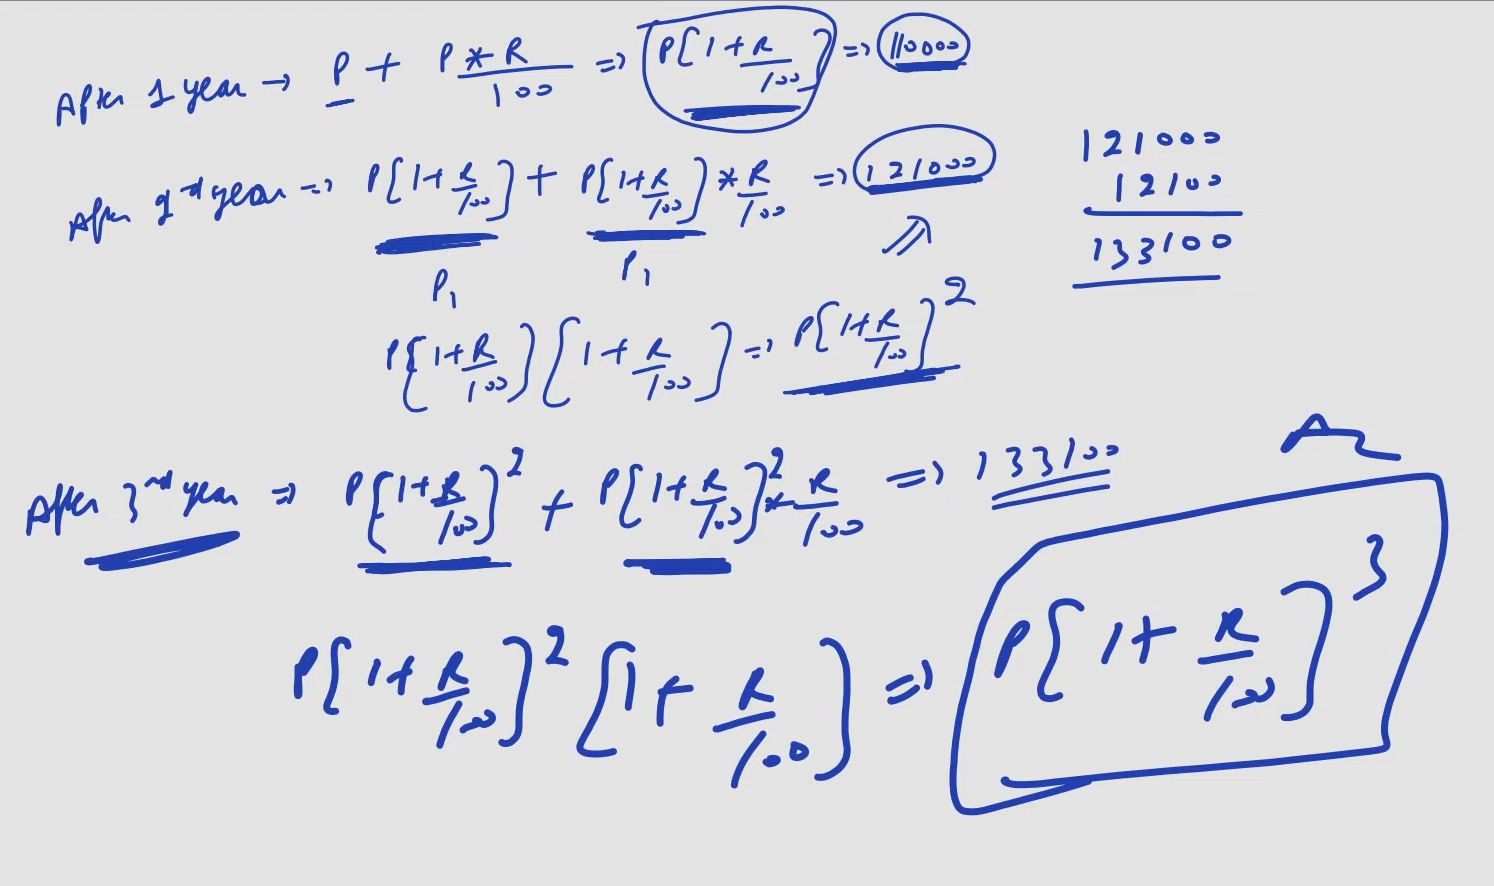 After 1 year → P + P * R / 100 => P[1 + R/100] => 110000
After 2nd year => P[1 + R/100] + P[1 + R/100] * R/100 => 121000
P1 P1
P[1 + R/100] [1 + R/100] => P[1 + R/100]^2
121000
12100
133100
After 3rd year => P[1 + R/100]^2 + P[1 + R/100]^2 * R/100 => 133100
P[1 + R/100]^2 [1 + R/100] => P[1 + R/100]^3